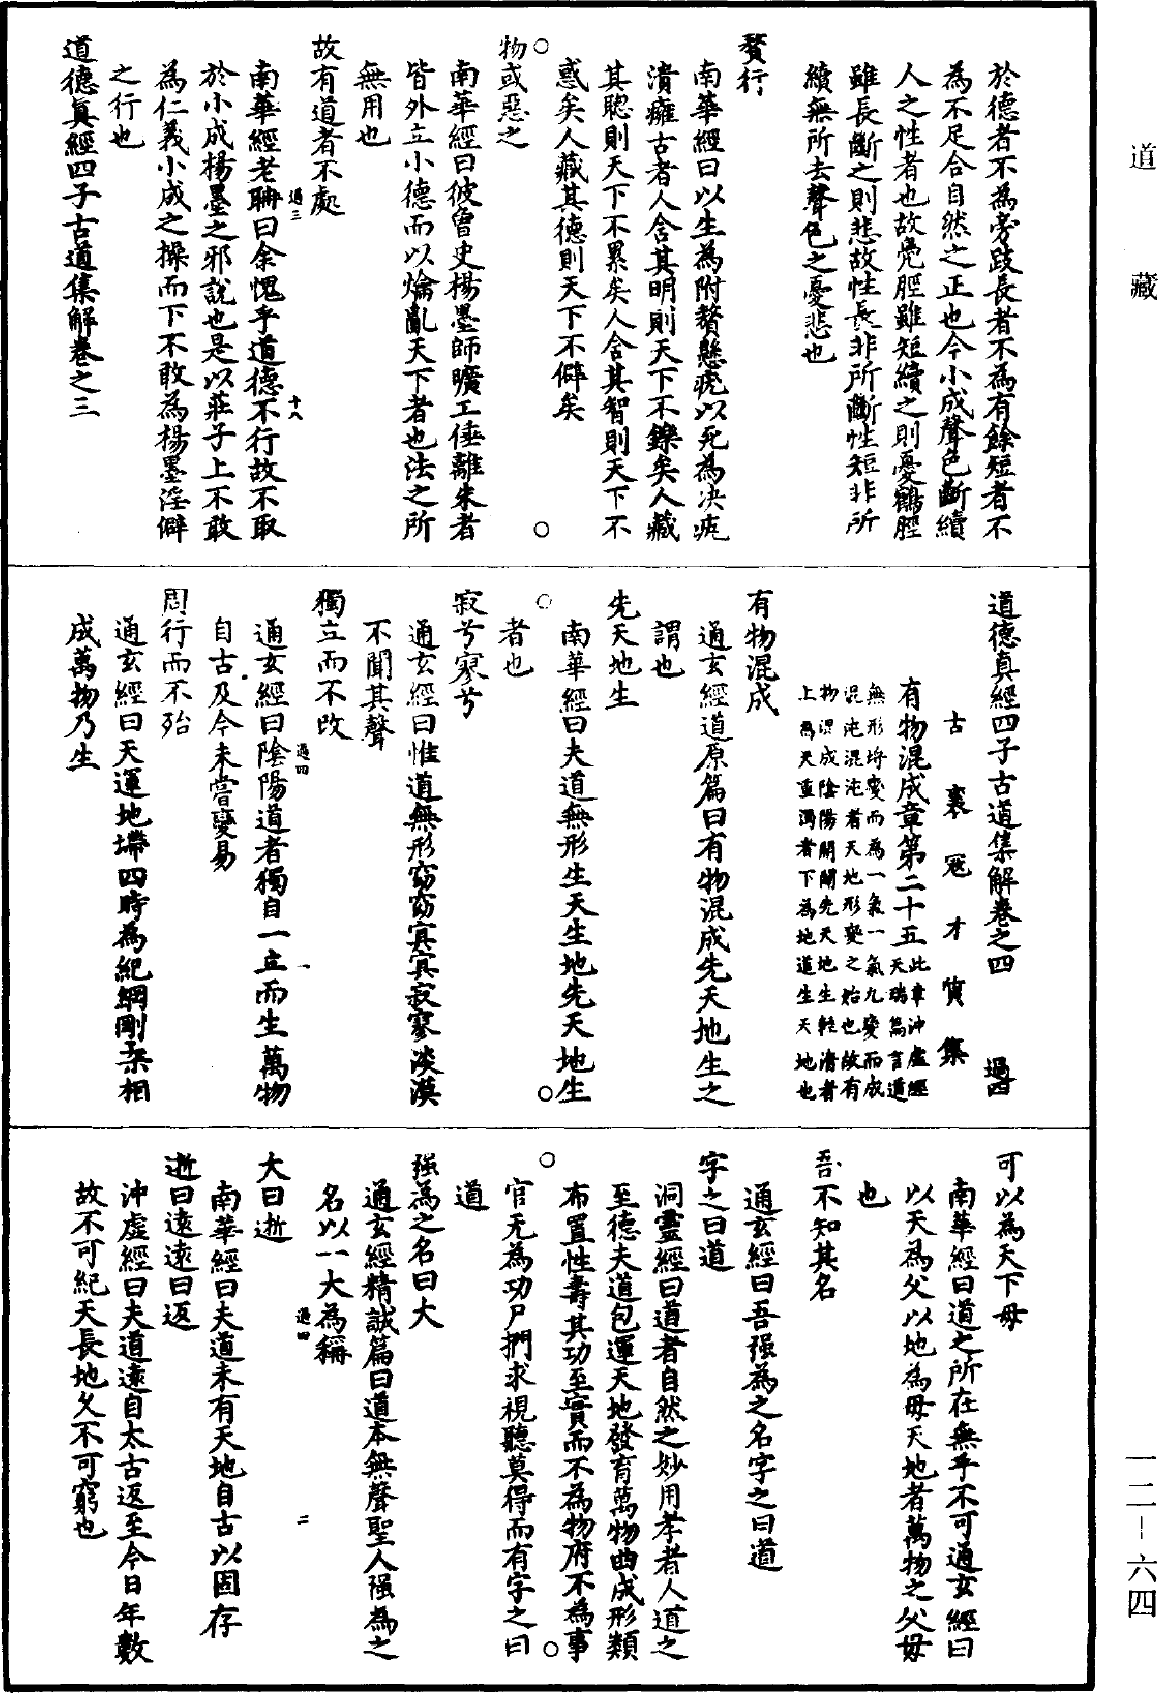 道藏
於德者不為旁跂長者不為有餘短者不
為不足合自然之正也今小成聲色斷續
人之性者也故鳧脛雖短續之則憂鶴脛
雖長斷之則悲故性長非所斷性短非所
續無所去聲色之憂悲也
贅行
南華經曰以生為附贅懸疣以死為决疣
潰癰古者人含其明則天下不鑠矣人藏
其聰則天下不累矣人含其智則天下不
惑矣人藏其德則天下不僻矣
物或惡之
南華經曰彼曾史楊墨師曠工倕離朱者
皆外立小德而以爚亂天下者也法之所
無用也
故有道者不處
南華經老聃曰余愧乎道德不行故不取
於小成楊墨之邪說也是以莊子上不敢
為仁義小成之操而下不敢為楊墨淫僻
之行也
道德真經四子古道集解卷之三
過三
十八
道德真經四子古道集解卷之四 過四
古襄寇才質集
有物混成章第二十五此章沖虛經
天瑞篇言道
無形埒變而為一氣一氣九變而成
混沌混沌者天地形變之始也故有
物混成陰陽開闢先天地生輕清者
上為天重濁者下為地道生天地也
有物混成
通玄經道原篇曰有物混成先天地生之
謂也
先天地生
南華經曰夫道無形生天生地先天地生
者也
寂兮寥兮
通玄經曰惟道無形窈窈冥冥寂寥淡漠
不聞其聲
獨立而不改
通玄經曰陰陽道者獨自一立而生萬物
自古及今未嘗變易
周行而不殆
通玄經曰天運地墆四時為紀綱剛柔相
成萬物乃生
過四
一
可以為天下母
南華經曰道之所在無乎不可通玄經曰
以天為父以地為母天地者萬物之父母
也
吾不知其名
通玄經曰吾强為之名字之曰道
字之曰道
洞靈經曰道者自然之妙用孝者人道之
至德夫道包運天地發育萬物曲成形類
布置性壽其功至實而不為物府不為事
官无為功尸捫求視聽莫得而有字之曰
道
强為之名曰大
通玄經精誠篇曰道本無聲聖人强為之
名以一大為稱
大曰逝
南華經曰夫道未有天地自古以固存
逝曰遠遠曰返
沖虛經曰夫道遠自太古返至今日年數
故不可紀天長地久不可窮也
過四
二
一二－六四